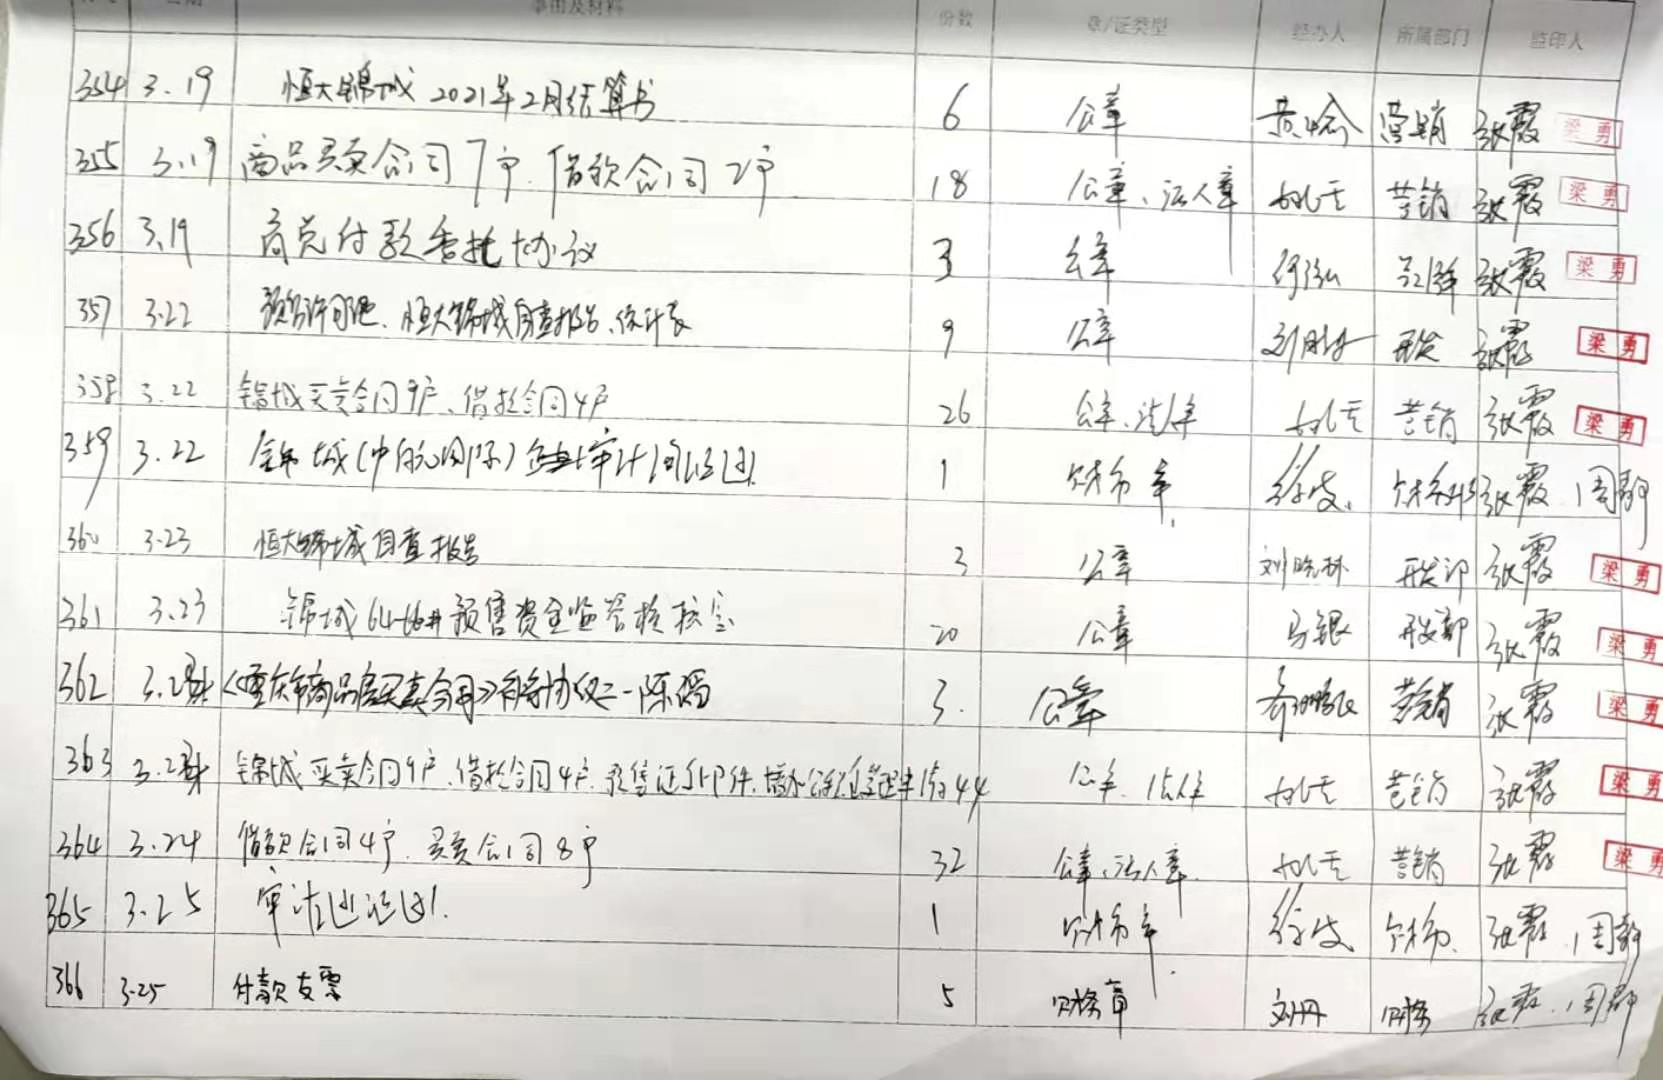 事由及材料 份数 章/证类型 经办人 所属部门 监印人
354 3.19 恒大锦城 2021年2月结算书 6 公章 营销 张霞 梁勇
355 3.19 商品买卖合同7户、借款合同2户 18 公章、法人章 营销 张霞 梁勇
356 3.19 商兑付款委托协议 3 公章 张霞 梁勇
357 3.22 预售许可、恒大锦城自查报告、统计表 9 公章 开发 张霞 梁勇
358 3.22 锦城买卖合同9户、借款合同4户 26 公章、法人章 营销 张霞 梁勇
359 3.22 锦城(中 国际) 审计 1 财务章 徐 财务 张霞 周静
360 3.23 恒大锦城自查报告 3 公章 刘晓林 开发部 张霞 梁勇
361 3.23 锦城64-66#预售资金监管 20 公章 马银 开发部 张霞 梁勇
362 3.24 《重庆市商品房买卖合同》补充协议二-陈 3. 公章 营销 张霞 梁勇
363 3.24 锦城买卖合同9户、借款合同4户、预售证复印件、 44 公章、法人章 营销 张霞 梁勇
364 3.24 借款合同4户、买卖合同8户 32 公章、法人章 营销 张霞 梁勇
365 3.25 审计 1 财务章 徐 财务、 张霞 周静
366 3.25 付款支票 5 财务章 刘丹 财务 张霞、周静